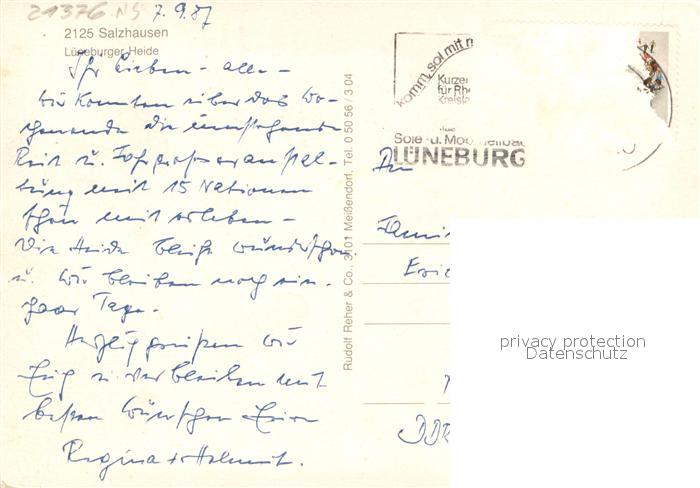 21376 NS 7.9.87
2125 Salzhausen
Lüneburger Heide
Ihr Lieben - alle -
wir konnten über das Wo-
chenende die umstehende
Reit u. Fahrgroßveranstal-
tung mit 15 Nationen
schön mit erleben -
Die Heide blüht wunderschön
u. wir bleiben noch ein
paar Tage.
Herzlig grüßen wir
Euch u. verbleiben mit
besten Wünschen Eure
Regina + Helmut.
Rudolf Reher & Co., 3101 Meißendorf, Tel. 0 50 56 / 3 04
komm, sol mit
Kurze
für Rh
Kreisla
Sole- u. Moo heilbad
LÜNEBURG
An
Fami
Eric
DDR
privacy protection
Datenschutz